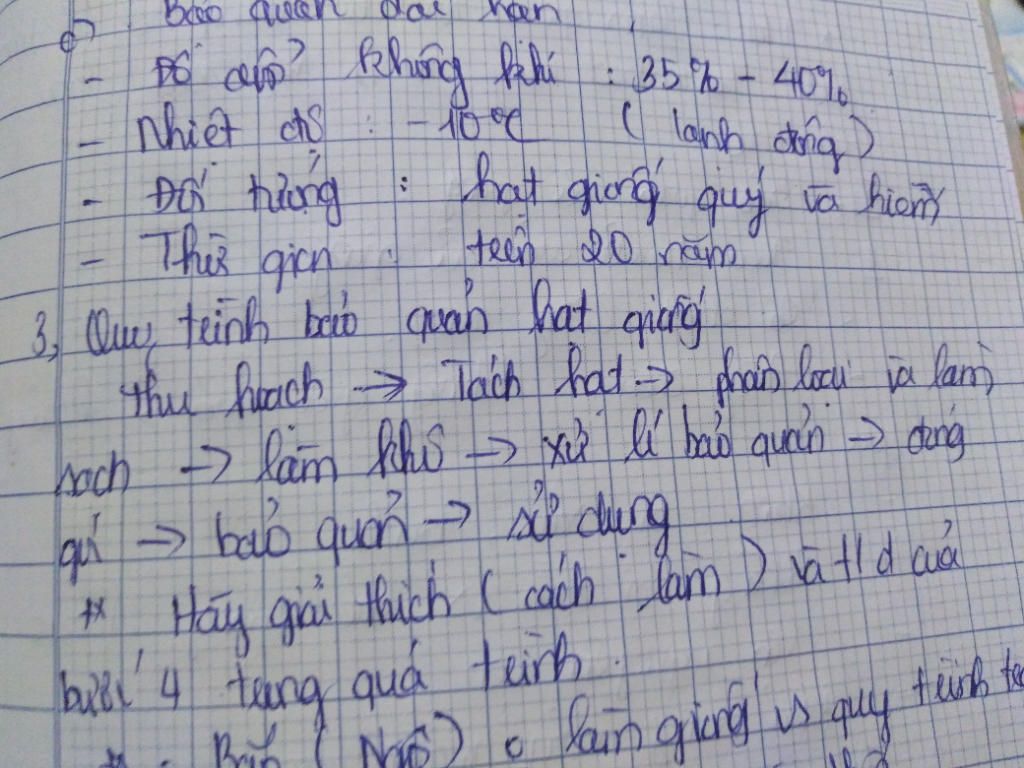 c) Bảo quản dài hạn
- Độ ẩm không khí : 35% - 40%
- Nhiệt độ : -10°C (lạnh đông)
- Đối tượng : hạt giống quý và hiếm
- Thời gian : trên 20 năm
3, Quy trình bảo quản hạt giống
thu hoạch → Tách hạt → phân loại và làm
sạch → làm khô → xử lí bảo quản → đóng
gói → bảo quản → sử dụng
** Hãy giải thích (cách làm) và t/d của
bước 4 trong quá trình.
làm giống quy trình